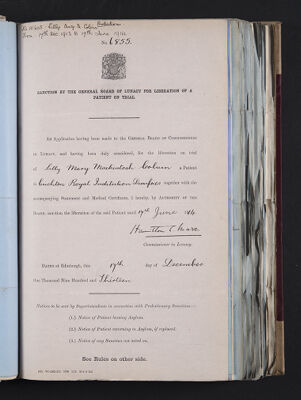 17th Dec. 1913 to 17th June 1914
No. 6855.
SANCTION BY THE GENERAL BOARD OF LUNACY FOR LIBERATION OF A
PATIENT ON TRIAL.
An Application having been made to the General Board of Commissioners
in Lunacy, and having been duly considered, for the liberation on trial
of Lilly Mary Mackintosh a Patient
in Crichton Royal Institution Dumfries together with the
accompanying Statement and Medical Certificate, I hereby, by Authority of the
Board, sanction the liberation of the said Patient until 17th June 1914.
Commissioner in Lunacy.
Dated at Edinburgh, this 17th day of December
One Thousand Nine Hundred and Thirteen
Notices to be sent by Superintendents in connection with Probationary Sanctions:—
(1.) Notice of Patient leaving Asylum.
(2.) Notice of Patient returning to Asylum, if replaced.
(3.) Notice of any Sanction not acted on.
See Rules on other side.